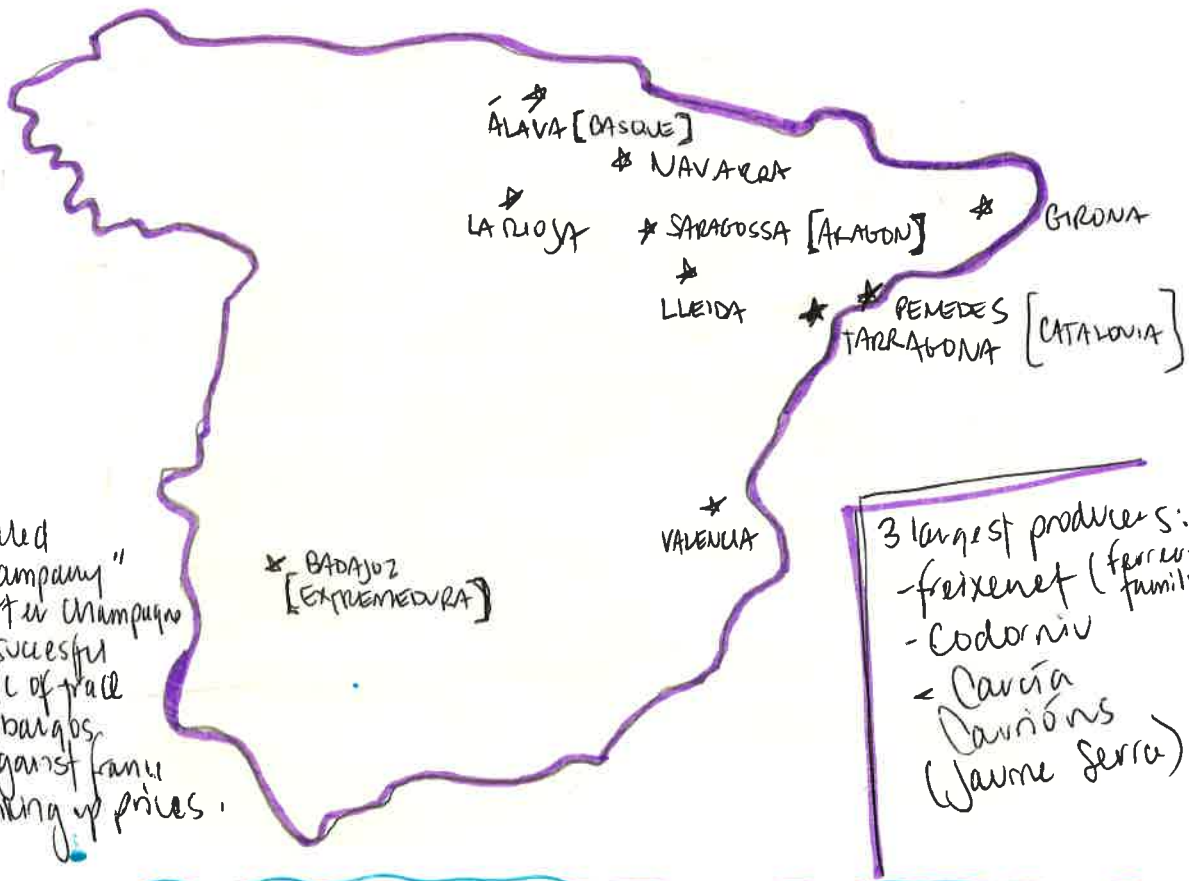 ÁLAVA [BASQUE]
NAVARRA
LA RIOJA
SARAGOSSA [ARAGON]
GIRONA
LLEIDA
PENEDES
TARRAGONA [CATALONIA]
VALENCIA
BADAJOZ
[EXTREMEDURA]
champagne
succesful
of
against france
up prices.
3 largest producers:
-freixenet (
-Codorniu
- García
Carrións
(Jaume Serra)